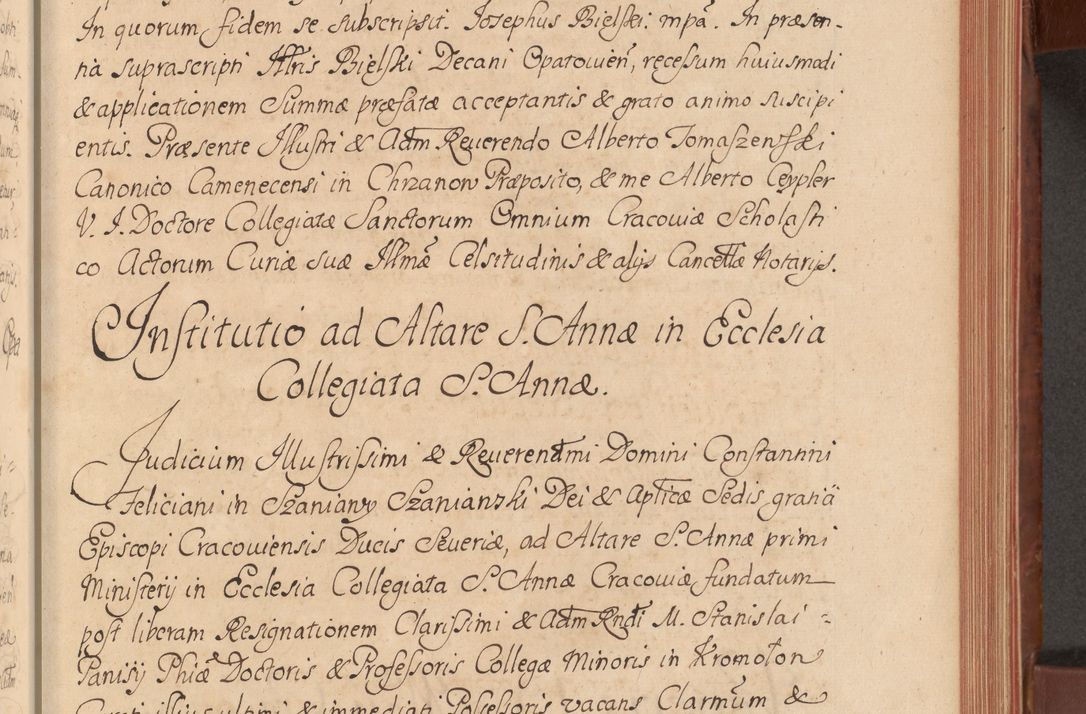 In quorum fidem se subscripsit. Josephus Bielski. mpã. In præsen-
tia suprascripti Illris Bielski Decani Opatovien, recessum huiusmodi
& applicationem Summæ præfatæ acceptantis & grato animo suscipi
entis. Præsente Illustri & Adm Reuerendo Alberto Tomaszenski
Canonico Camenecensi in Chrzanow Præposito, & me Alberto Ceypler
V. J. Doctore Collegiatæ Sanctorum Omnium Cracouiæ Scholasti
co Actorum Curiæ suæ Illmæ Celsitudinis & alijs Cancellæ Notarijs.
Institutio ad Altare S. Annæ in Ecclesia
Collegiata S. Annæ.
Judicium Illustrissimi & Reuerendmi Domini Constantini
Feliciani in Szaniawy Szaniawski Dei & Aplicæ Sedis gratiâ
Episcopi Cracouiensis Ducis Seueriæ, ad Altare S. Annæ primi
Ministerij in Ecclesia Collegiata S. Annæ Cracouiæ fundatum
post liberam Resignationem Clarissimi & Adm Rndi M. Stanislai =
Panisij Phiæ Doctoris & Professoris Collegæ Minoris in Kromołow
illius ultimi & immediati Possessoris vacans Clarmum &